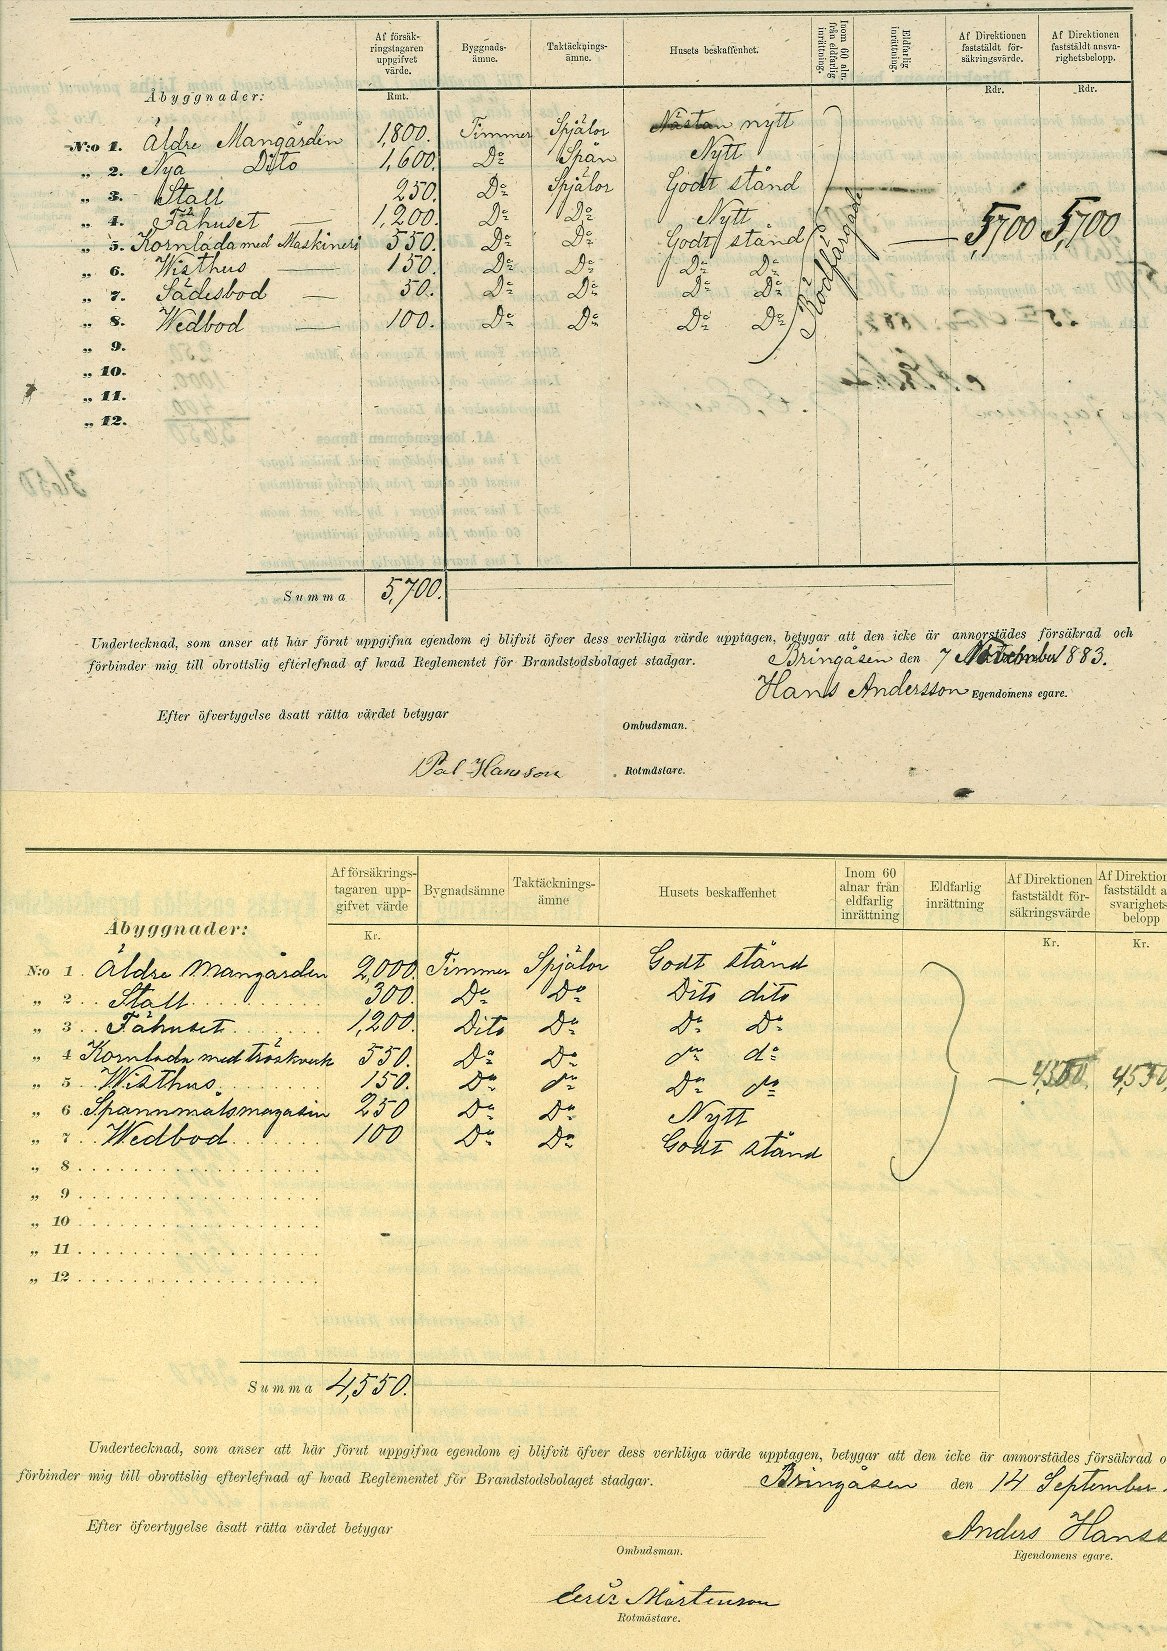 Åbyggnader: Af försäk-ringstagaren uppgifvet värde. Byggnads-ämne. Taktäcknings-ämne. Husets beskaffenhet. Inom 60 aln. från eldfarlig inrättning. Eldfarlig inrättning. Af Direktionen faststäldt för-säkringsvärde. Af Direktionen faststäldt ansva-righetsbelopp.
Rmt. Rdr. Rdr.
N:o 1. Äldre Mangården 1,800. Timmer Spjälor Nästan nytt
„ 2. Nya Dito 1,600. Do Spån Nytt
„ 3. Stall 250. Do Spjälor Godt stånd
„ 4. Fähuset 1,200. Do Do Nytt
„ 5. Kornlada med Maskineri 550. Do Do Godt stånd Rödfärgade 5,700 5,700
„ 6. Wisthus 150. Do Do Do Do
„ 7. Sädesbod 50. Do Do Do Do
„ 8. Wedbod 100. Do Do Do Do
„ 9.
„ 10.
„ 11.
„ 12.
Summa 5,700.
Undertecknad, som anser att här förut uppgifna egendom ej blifvit öfver dess verkliga värde upptagen, betygar att den icke är annorstädes försäkrad och
förbinder mig till obrottslig efterlefnad af hvad Reglementet för Brandstodsbolaget stadgar. Bringåsen den 7 November 1883.
Hans Andersson Egendomens egare.
Efter öfvertygelse åsatt rätta värdet betygar
Ombudsman.
Pål Hansson Rotmästare.
Åbyggnader: Af försäkrings-tagaren upp-gifvet värde Bygnadsämne Taktäcknings-ämne Husets beskaffenhet Inom 60 alnar från eldfarlig inrättning Eldfarlig inrättning Af Direktionen faststäldt för-säkringsvärde Af Direktion faststäldt a svarighets belopp
Kr. Kr. Kr.
N:o 1 Äldre Mangården 2,000. Timmer Spjälor Godt stånd
„ 2 Stall 300. Do Do Dito dito
„ 3 Fähuset 1,200. Dito Do Do Do
„ 4 Kornlada med tröskverk 550. Do Do do do
„ 5 Wisthus 150. Do do Do do 4,550. 4,550
„ 6 Spannmålsmagasin 250 Do Do Nytt
„ 7 Wedbod 100 Do Do Godt stånd
„ 8
„ 9
„ 10
„ 11
„ 12
Summa 4,550.
Undertecknad, som anser att här förut uppgifna egendom ej blifvit öfver dess verkliga värde upptagen, betygar att den icke är annorstädes försäkrad o
förbinder mig till obrottslig efterlefnad af hvad Reglementet för Brandstodsbolaget stadgar. Bringåsen den 14 September
Anders Hanss
Egendomens egare.
Efter öfvertygelse åsatt rätta värdet betygar
Ombudsman.
Mårtenson
Rotmästare.